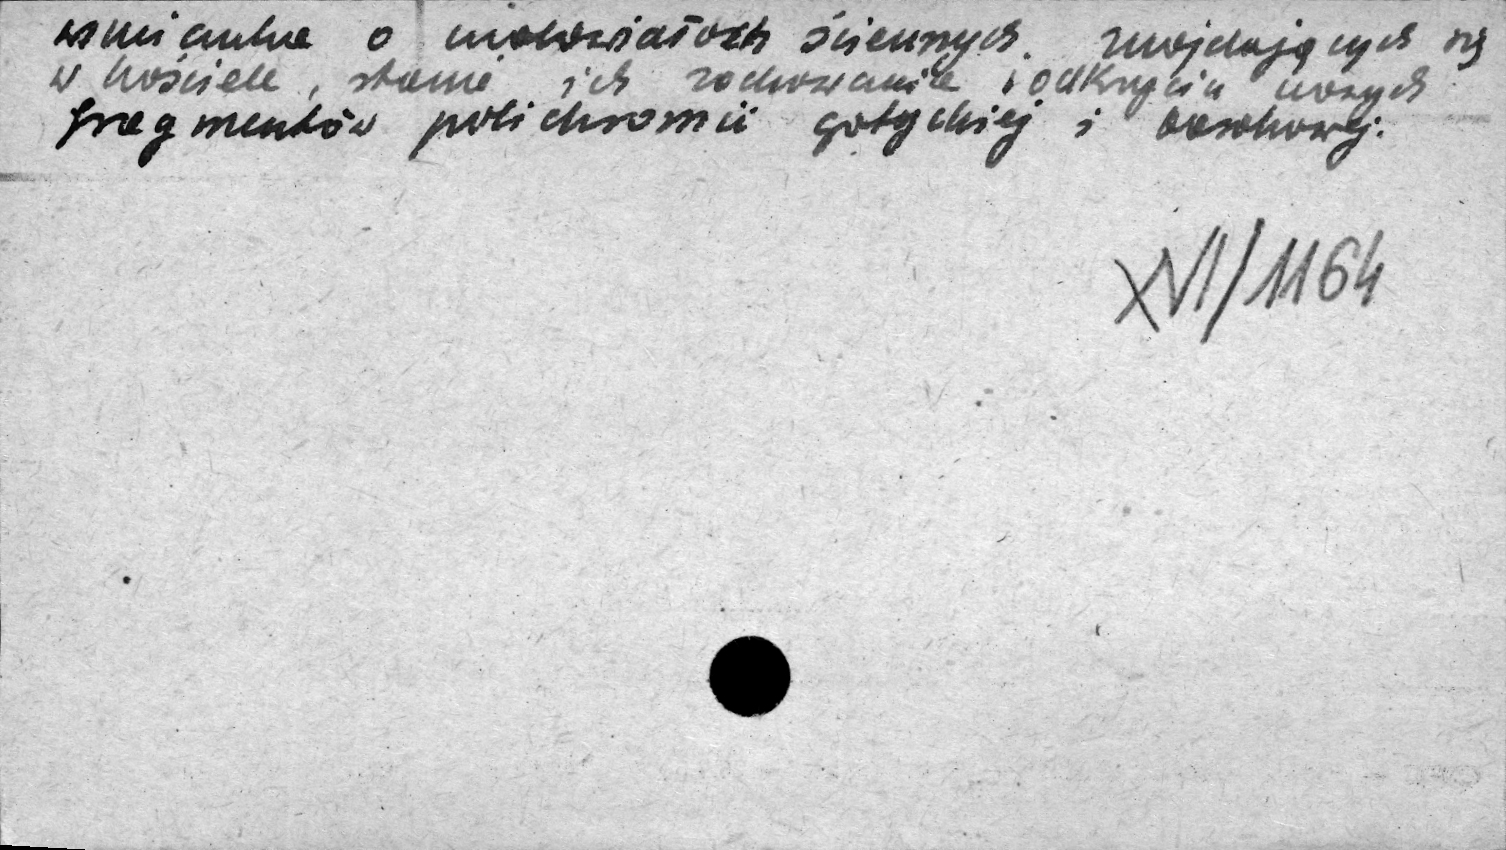 wzmianka o malowidłach ściennych znajdujących się
w kościele, stanie ich zachowania i odkryciu nowych
fragmentów polichromii gotyckiej i barokowej.
XVI/1164